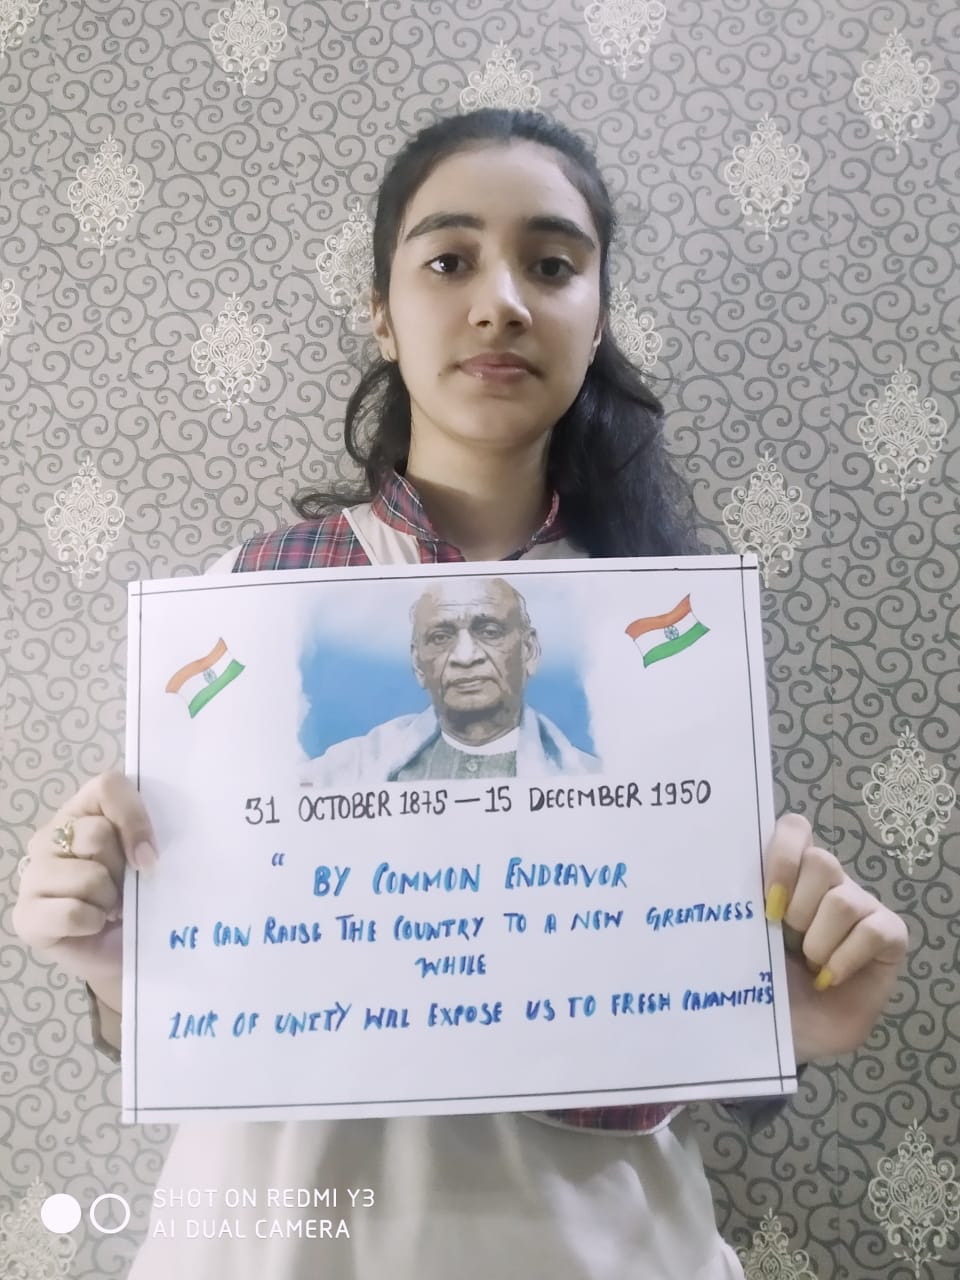 31 OCTOBER 1875 — 15 DECEMBER 1950
“ BY COMMON ENDEAVOR
WE CAN RAISE THE COUNTRY TO A NEW GREATNESS
WHILE
LACK OF UNITY WILL EXPOSE US TO FRESH CALAMITIES”
SHOT ON REDMI Y3
AI DUAL CAMERA